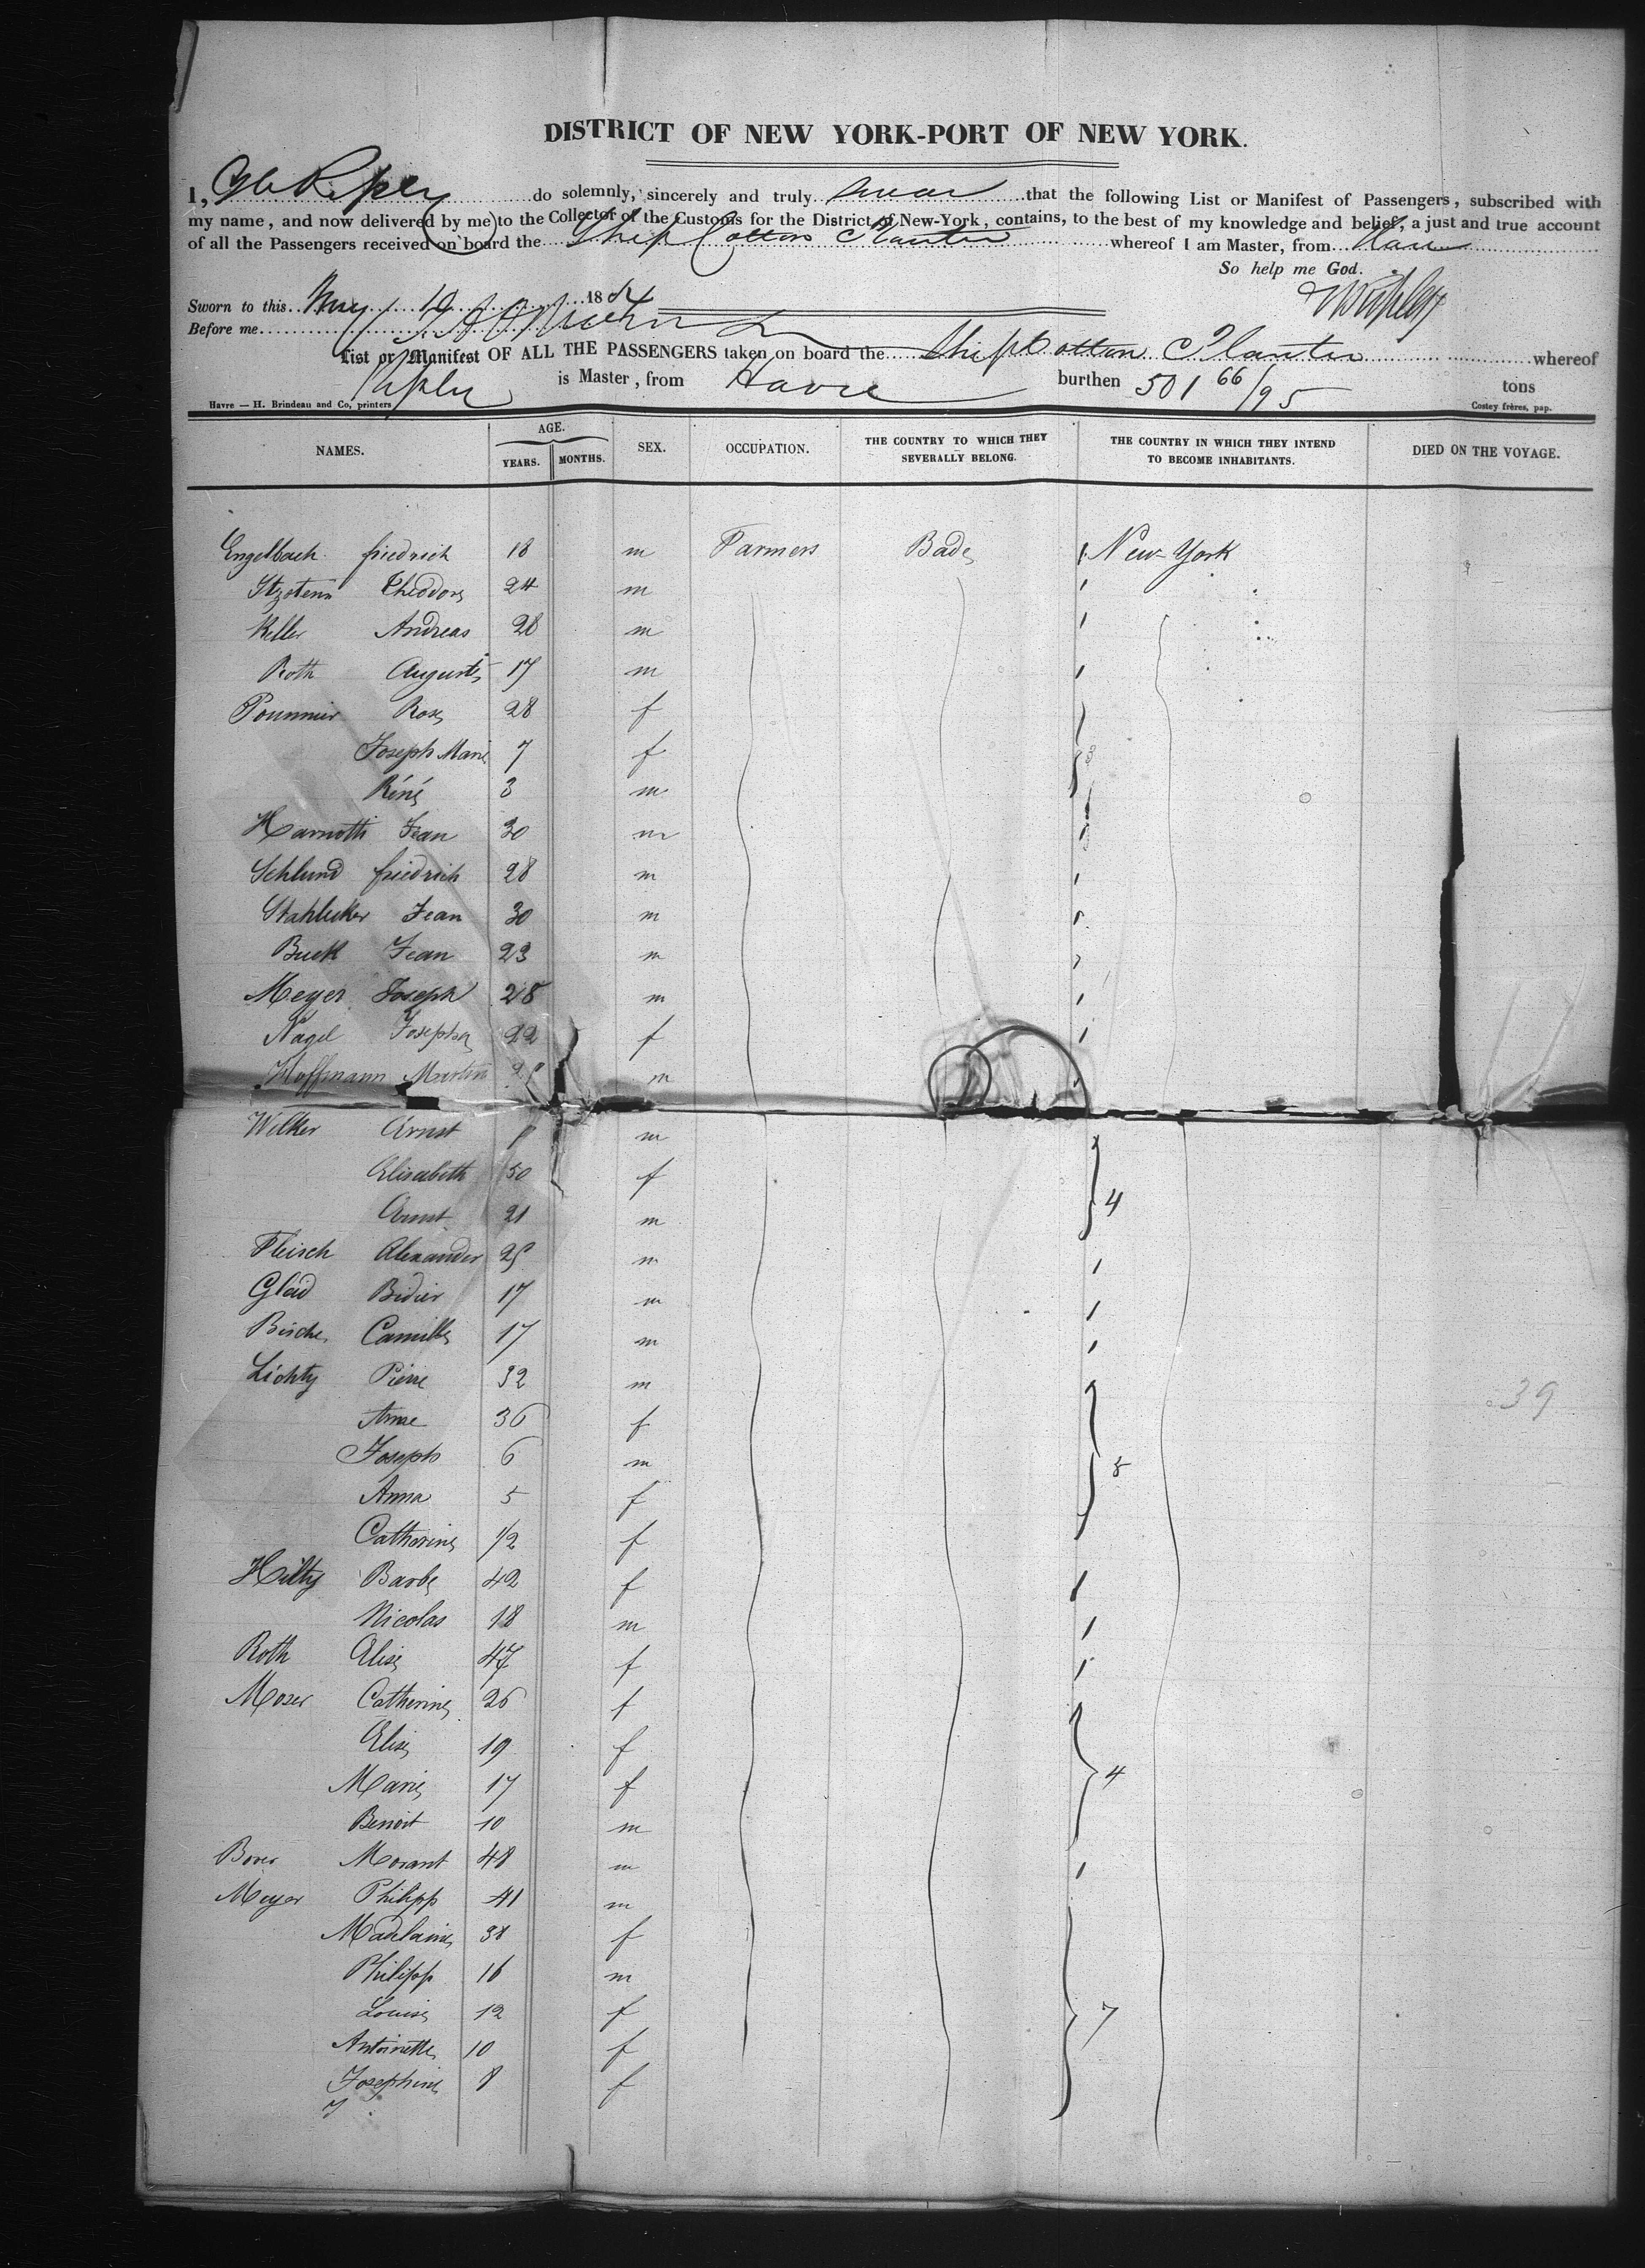 DISTRICT OF NEW YORK-PORT OF NEW YORK.
I, do solemnly, sincerely and truly swear that the following List or Manifest of Passengers, subscribed with
my name, and now delivered by me to the Collector of the Customs for the District of New-York, contains, to the best of my knowledge and belief, a just and true account
of all the Passengers received on board the Ship Cotton Planter whereof I am Master, from Havre
So help me God.
Sworn to this May 19 18
Before me
List or Manifest OF ALL THE PASSENGERS taken on board the Ship Cotton Planter whereof
is Master, from Havre burthen 501 66/95 tons
Havre — H. Brindeau and Co, printers Costey frères, pap.
NAMES. AGE. YEARS. MONTHS. SEX. OCCUPATION. THE COUNTRY TO WHICH THEY SEVERALLY BELONG. THE COUNTRY IN WHICH THEY INTEND TO BECOME INHABITANTS. DIED ON THE VOYAGE.
Engelbach friedrich 18 m Farmers Bade 1 New-York
Theodore 24 m 1
Keller Andreas 28 m 1
Roth Auguste 17 m 1
Pommier Rose 28 f
Joseph Marie 7 f 3
Réné 3 m
Jean 30 m 1
Schlund friedrich 28 m 1
Stahlecker Jean 30 m 1
Buck Jean 23 m 1
Meyer Joseph 28 m 1
Nagel Josepha 22 f 1
Hoffmann Martin m
Welker Arnst m
Elisabeth 50 f 4
Arnst 21 m
Fleisch Alexander 25 m 1
Glad Bidier 17 m 1
Camille 17 m 1
Lichty Pierre 32 m
Anne 36 f
Joseph 6 m 5
Anna 5 f
Catherine 1/2 f
Hilty Barbe 42 f 1
Nicolas 18 m 1
Roth Elise 47 f 1
Moser Catherine 26 f
Elise 19 f
Marie 17 f 4
Benoit 10 m
Morant 48 m 1
Meyer Philipp 41 m
Madlaine 38 f
Philipp 16 m
Louise 12 f 7
Antoinette 10 f
Josephine 8 f
39